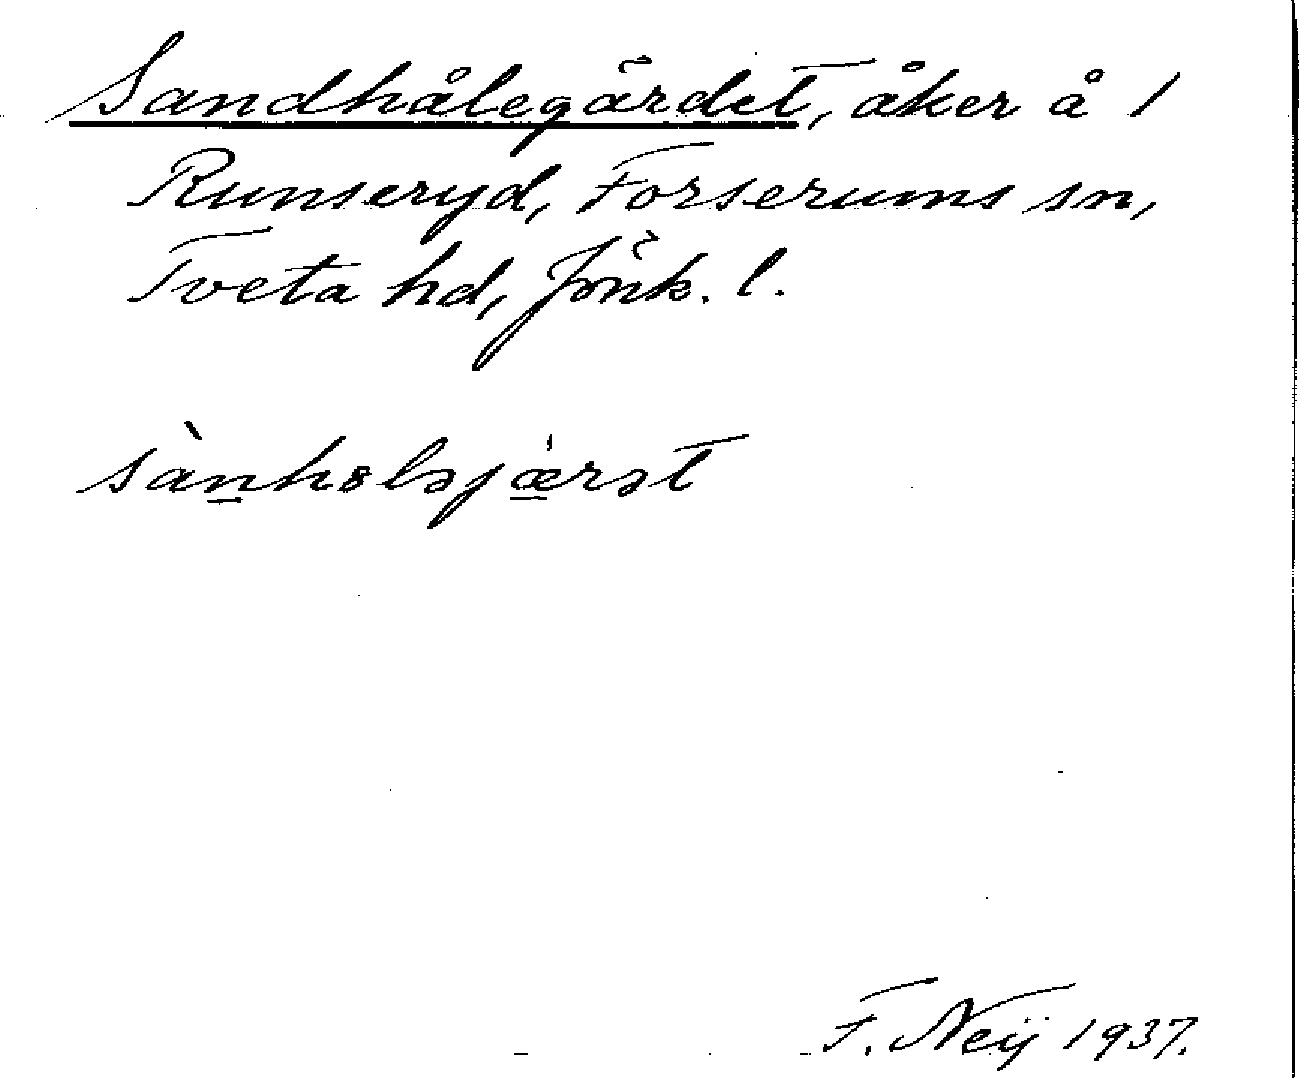 Sandhålegärdet, åker å 1
Runseryd, Forserums sn,
Tveta hd, Jönk. l.
sànhɵləjæ̱rət
F. Neij 1937.